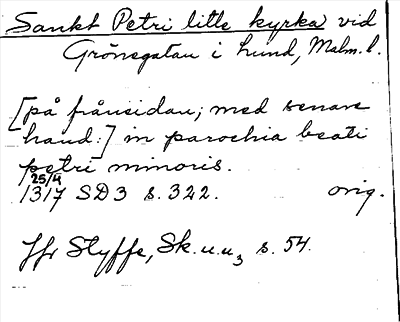 Sankt Petri lille kyrka vid
Grönegatan i Lund, Malm. l.
[på frånsidan; med senare
hand:] in parochia beati
petri minoris.
25/4
1317 SD3 s. 322. orig.
Jfr Styffe, Sk.u.u3 s. 54.